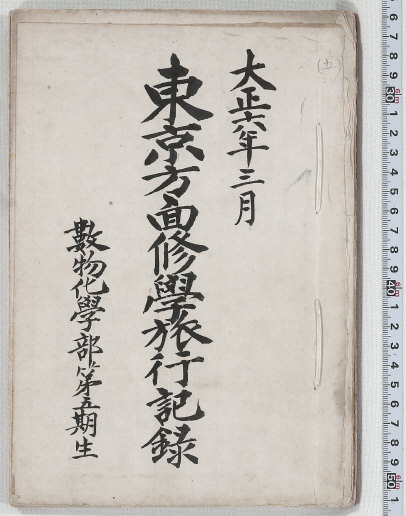 (五)
大正六年三月
東京方面修學旅行記録
數物化學部第五期生
6 7 8 9 30 1 2 3 4 5 6 7 8 9 40 1 2 3 4 5 6 7 8 9 50 1